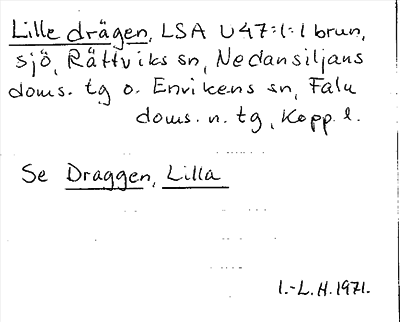 Lille drägen, LSA U47:1:1 brun,
sjö, Rättviks sn, Nedansiljans
doms. tg o. Envikens sn, Falu
doms. n. tg, Kopp. l.
Se Draggen, Lilla
I.-L. H. 1971.